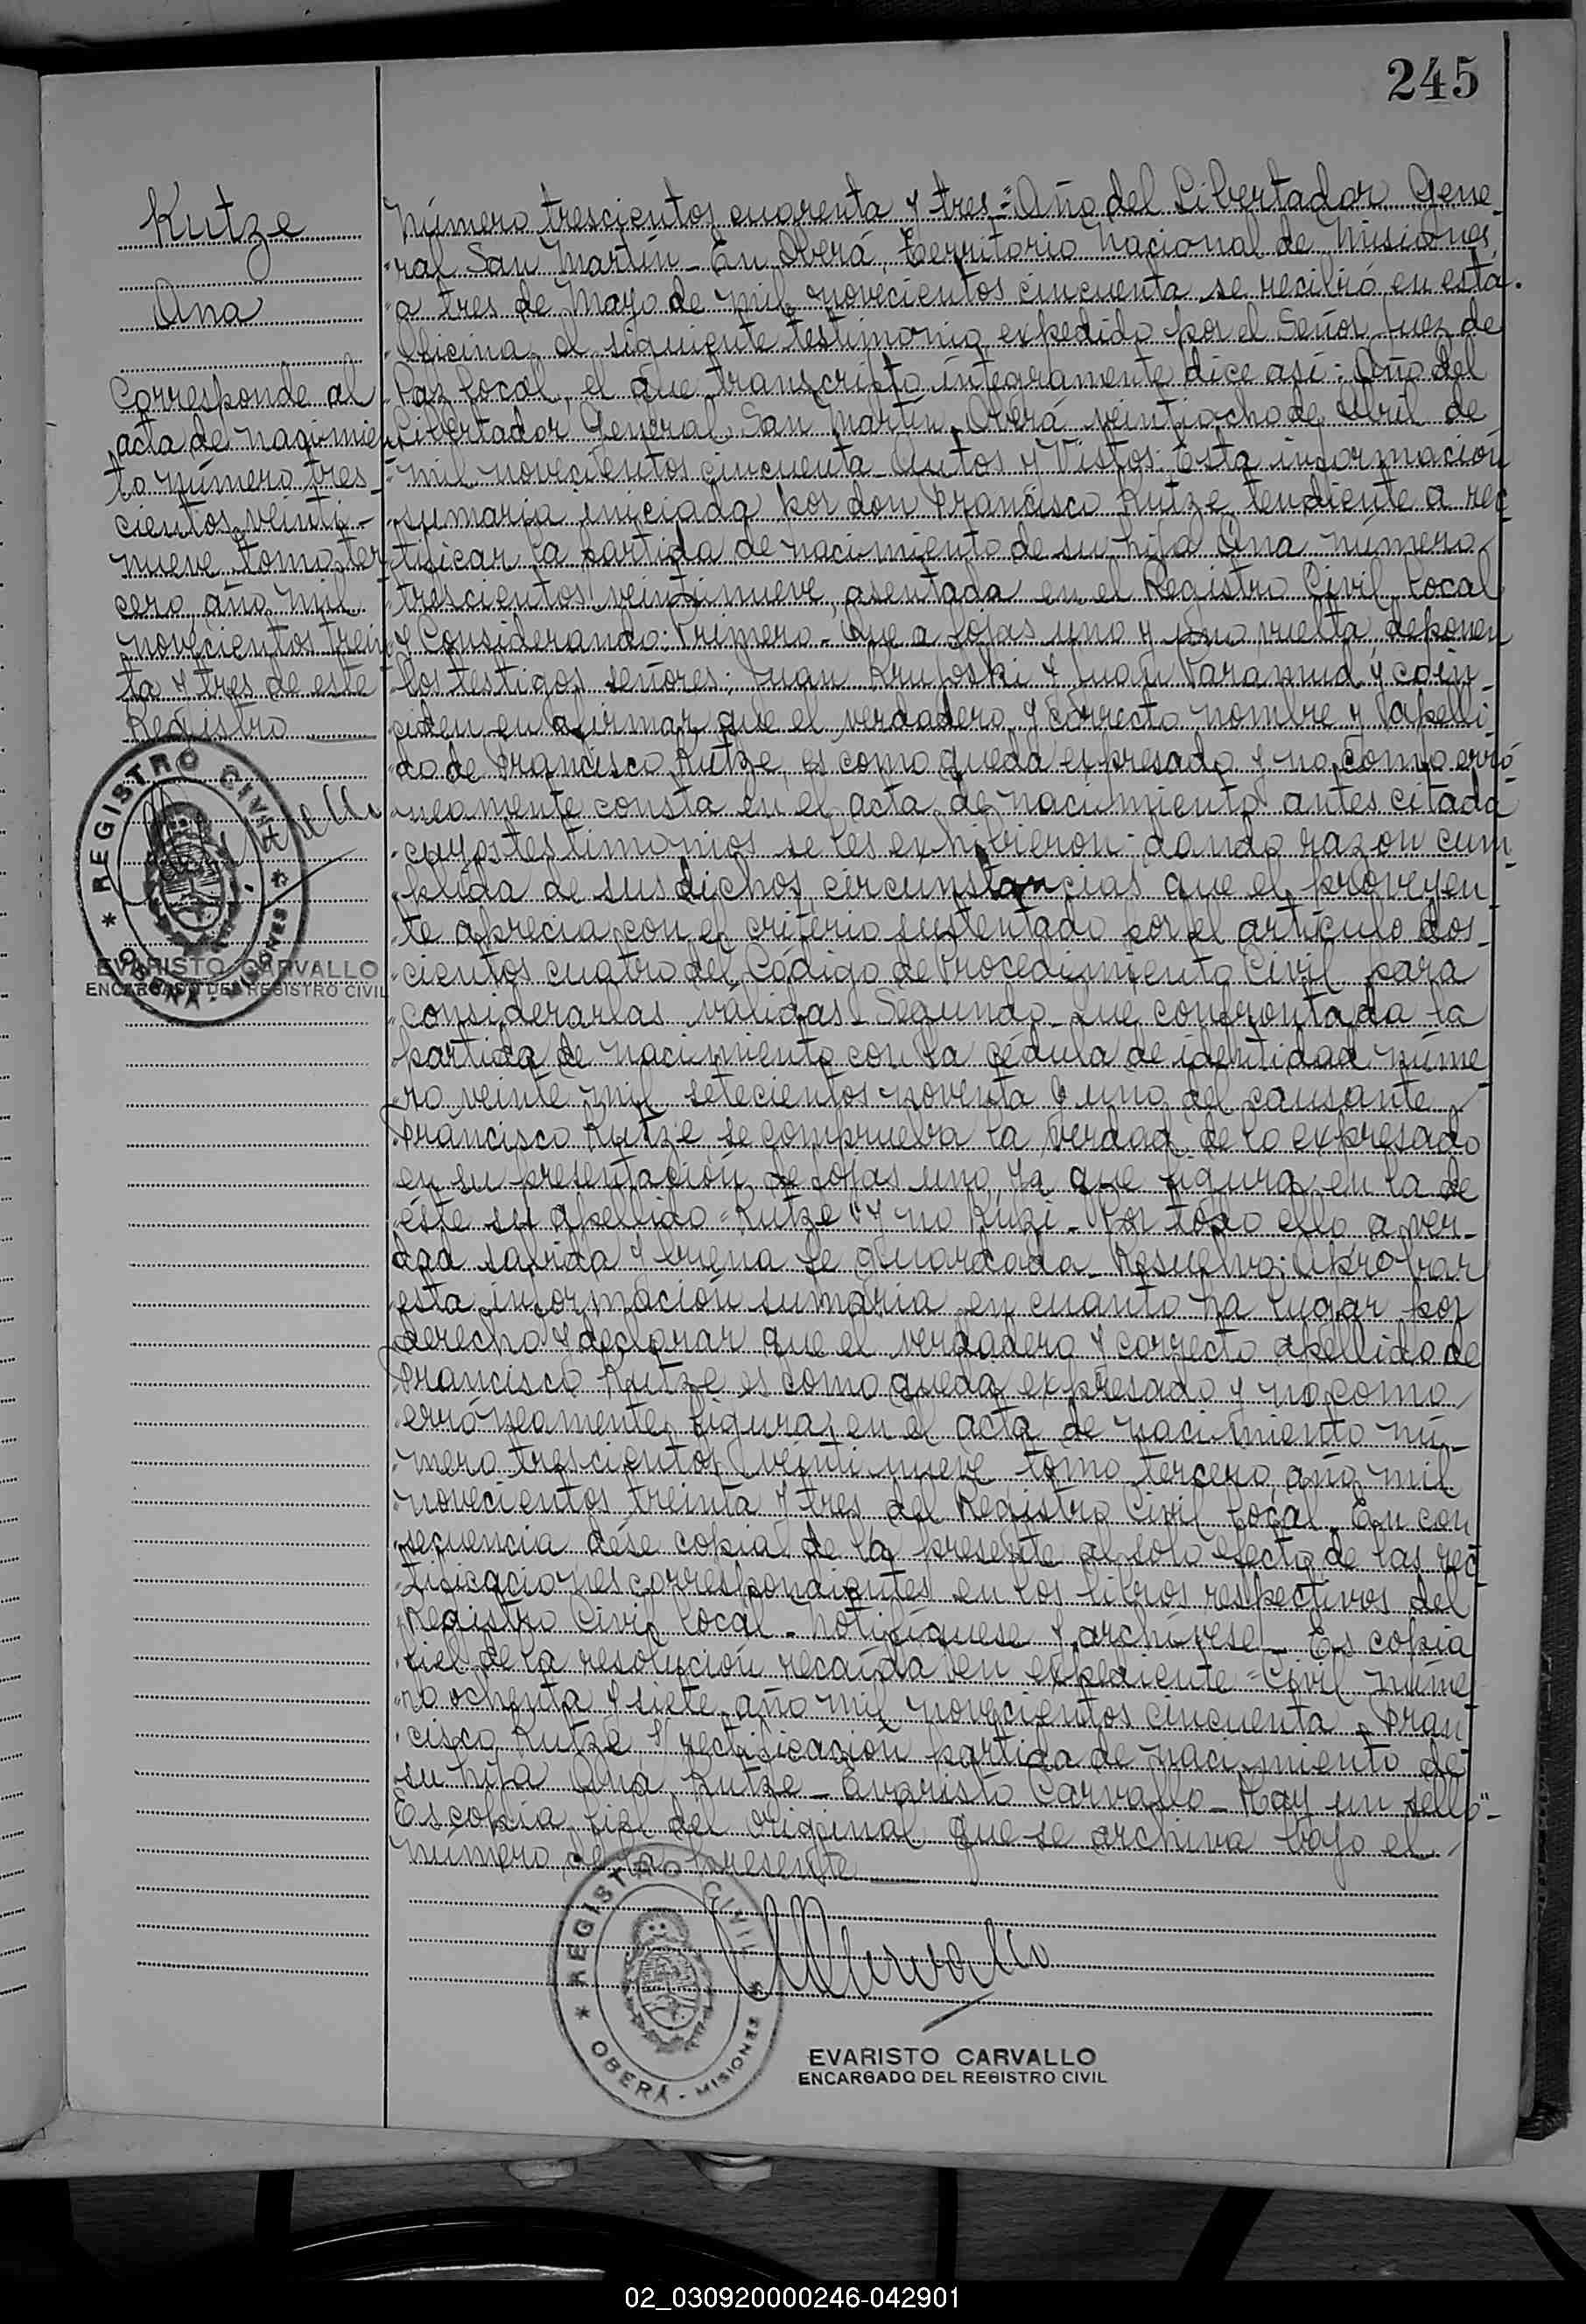 245
Kutze
Ana
Corresponde al
acta de nacimien
to número tres-
cientos veinti-
nueve tomo ter
cero, año mil
novecientos trein
ta y tres de este
Registro
REGISTRO CIVIL
OBERÁ - MISIONES
EVARISTO CARVALLO
ENCARGADO DEL REGISTRO CIVIL
Número trescientos cuarenta y tres = Año del Libertador Gene-
ral San Martín - En Oberá, Territorio Nacional de Misiones
a tres de Mayo de mil novecientos cincuenta se recibió en esta
Oficina el siguiente testimonio expedido por el Señor Juez de
Paz local, el que transcripto íntegramente dice así: Año del
Libertador General San Martín. Oberá veintiocho de Abril de
mil novecientos cincuenta. Autos y Vistos: Esta información
sumaria iniciada por don Francisco Kutze, tendiente a rec-
tificar la partida de nacimiento de su hija Ana número
trescientos veintinueve, asentada en el Registro Civil local
y Considerando: Primero - Que a fojas uno y uno vuelta deponen
los testigos señores: Juan y Juan y coin-
ciden en afirmar que el verdadero y correcto nombre y apelli
do de Francisco Kutze, es como queda expresado y no como erró
neamente consta en el acta de nacimiento antes citada
cuyos testimonios se les exhibieron dando razón cum-
plida de sus dichos, circunstancias que el proveyen
te aprecia con el criterio sustentado por el artículo dos-
cientos cuatro del Código de Procedimiento Civil para
considerarlas válidas - Segundo - que confrontada la
partida de nacimiento con la cédula de identidad núme
ro veinte mil setecientos noventa y uno del causante
Francisco Kutze se comprueba la verdad de lo expresado
en su presentación de fojas uno, ya que figura en la de
éste su apellido "Kutze" y no - Por todo ello a ver-
dad sabida y buena fe guardada - Resuelvo: Aprobar
esta información sumaria en cuanto ha lugar por
derecho y declarar que el verdadero y correcto apellido de
Francisco Kutze es como queda expresado y no como
erróneamente figura en el acta de nacimiento nú-
mero trescientos veintinueve tomo tercero, año mil
novecientos treinta y tres del Registro Civil local - En con
secuencia dése copia de la presente al solo efecto de las rec
tificaciones correspondientes en los libros respectivos del
Registro Civil local - Notifíquese y archívese - Es copia
fiel de la resolución recaída en expediente = Civil núme
ro ochenta y siete año mil novecientos cincuenta - Fran
cisco Kutze s/ rectificación partida de nacimiento de
su hija Ana Kutze - Evaristo Carvallo - Hay un sello" -
Es copia fiel del original que se archiva bajo el
número de la presente
REGISTRO CIVIL
OBERÁ - MISIONES
EVARISTO CARVALLO
ENCARGADO DEL REGISTRO CIVIL
02_030920000246-042901